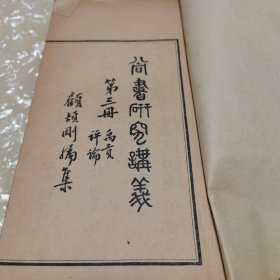 尚書研究講義
第三冊 禹貢評論
顧頡剛編集